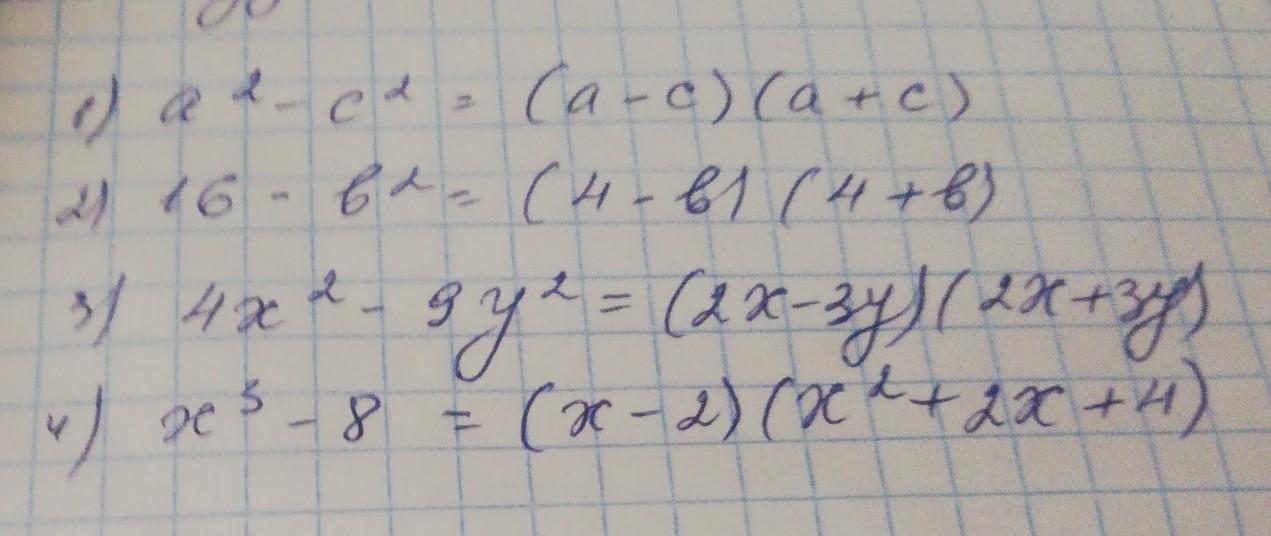 1) a² - c² = (a - c)(a + c)
2) 16 - b² = (4 - b) (4 + b)
3) 4x² - 9y² = (2x-3y)(2x+3y)
4) x³ - 8 = (x - 2)(x² + 2x + 4)